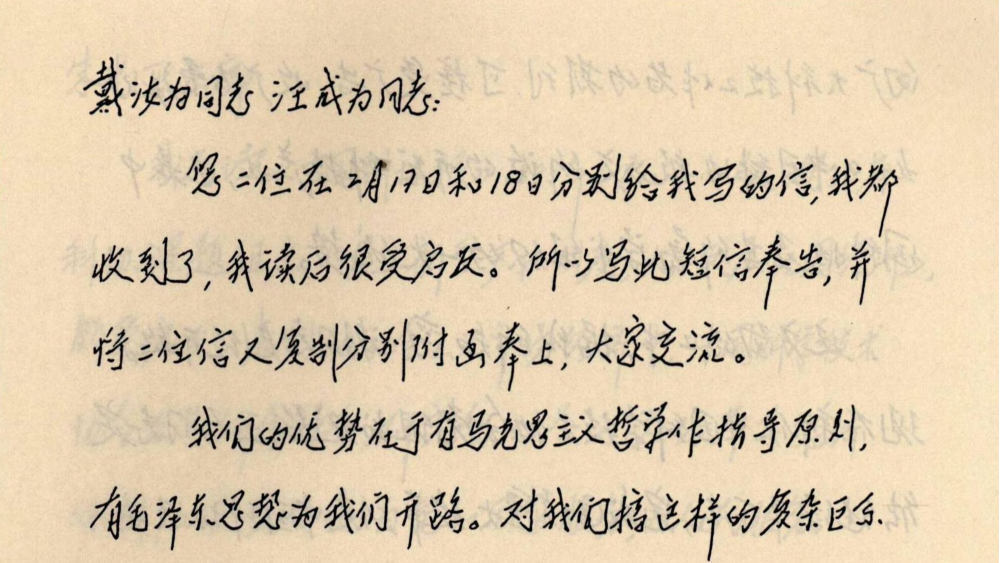 戴汝为同志 汪成为同志:
您二位在2月17日和18日分别给我写的信,我都
收到了,我读后很受启发。所以写此短信奉告,并
将二位信又复制分别附函奉上,大家交流。
我们的优势在于有马克思主义哲学作指导原则,
有毛泽东思想为我们开路。对我们搞这样的复杂巨系